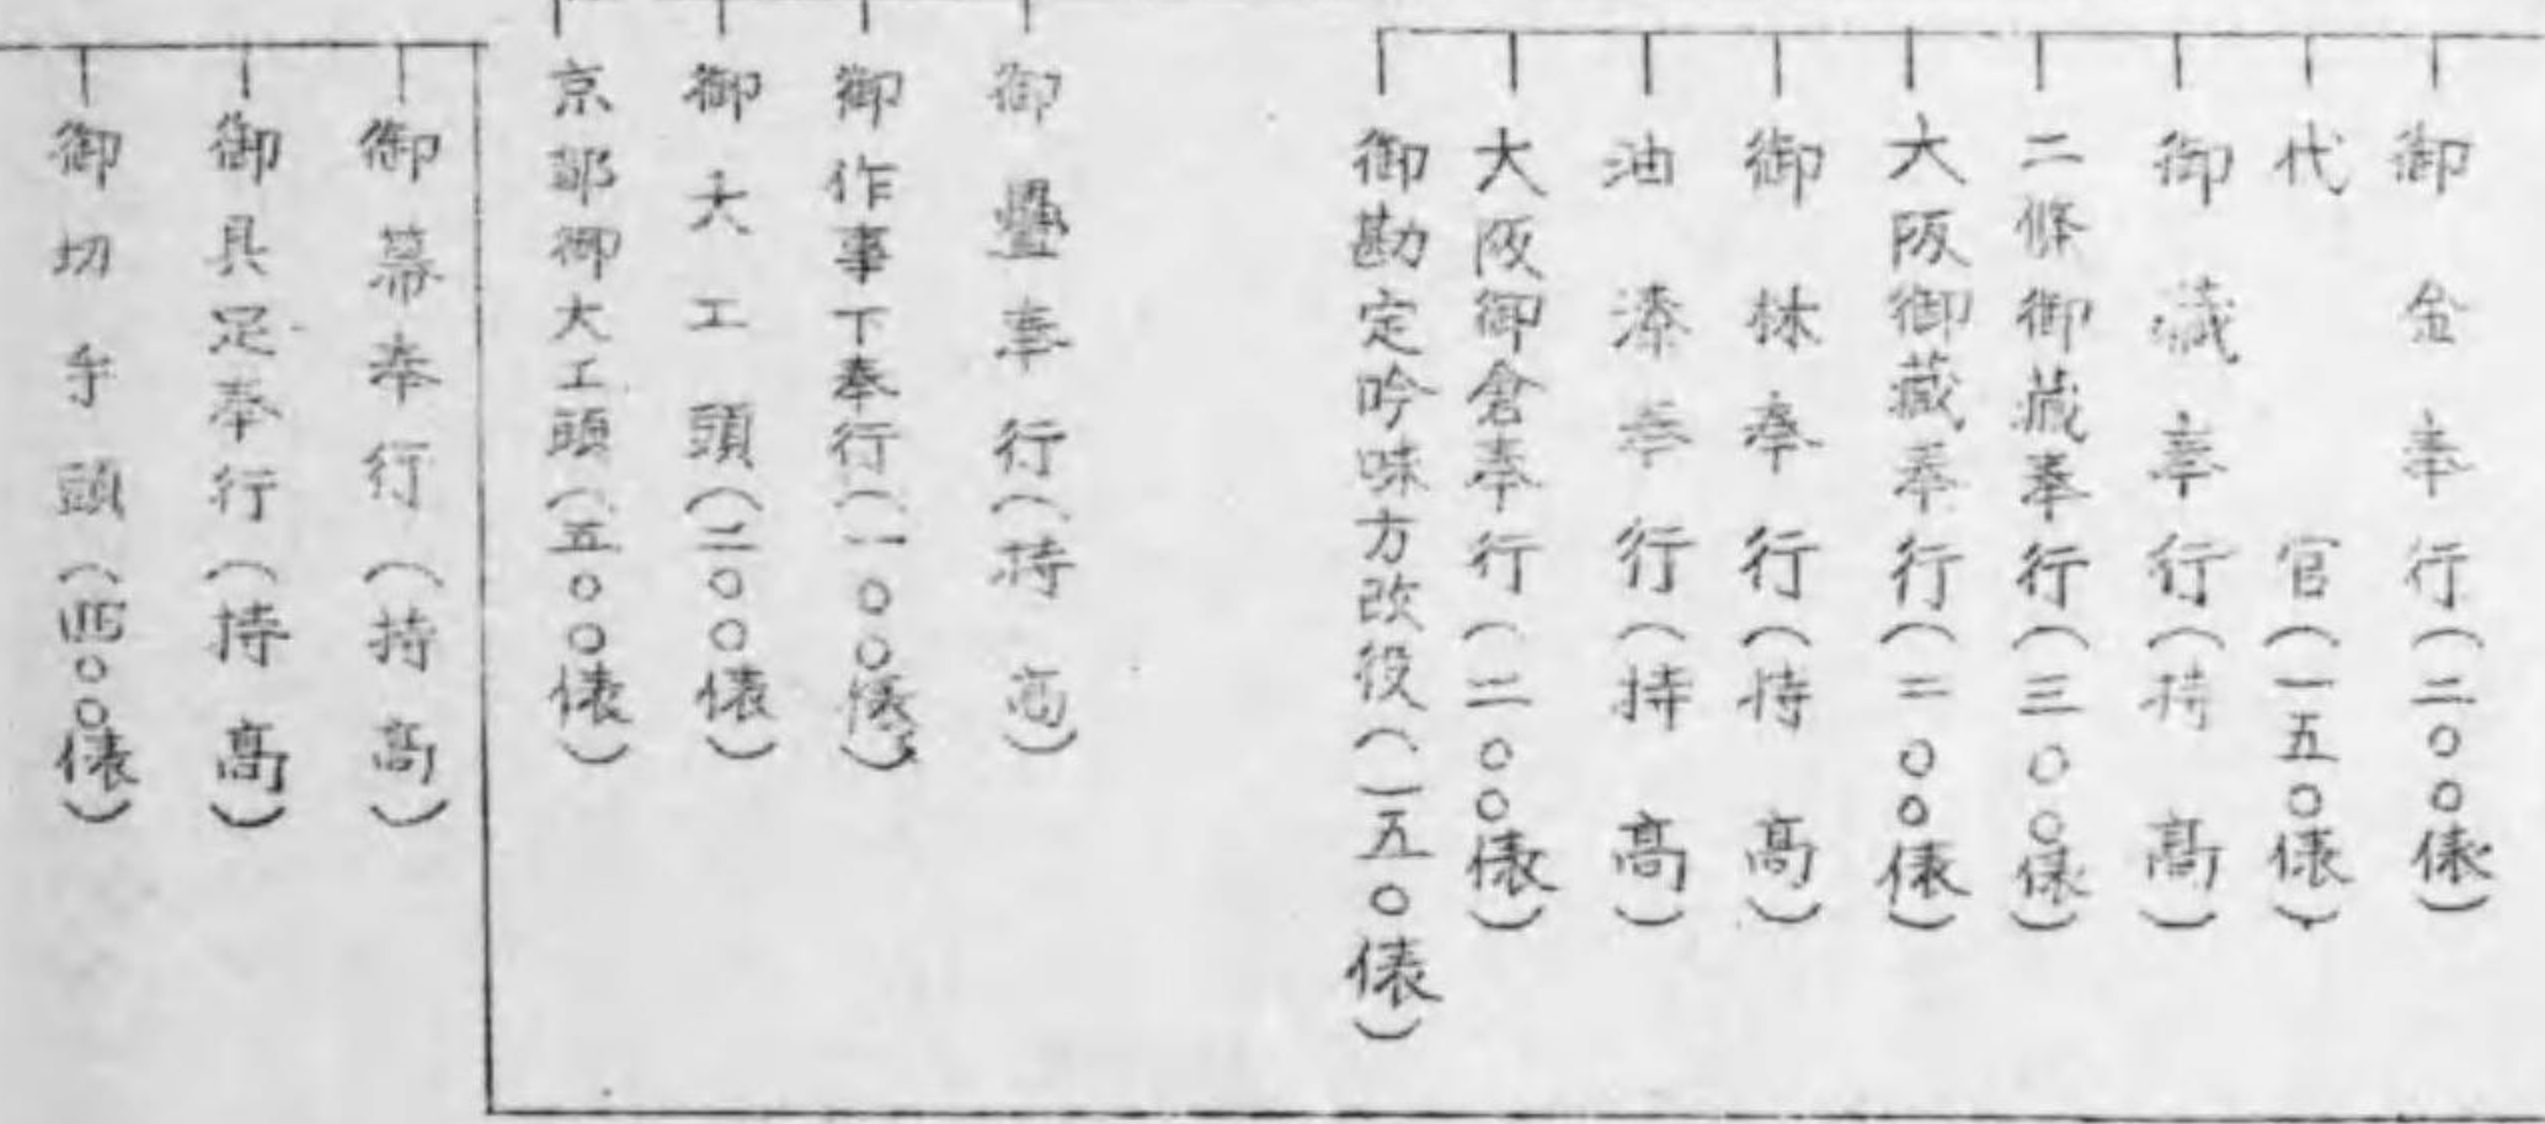 御金奉行(二〇〇俵)
代官(一五〇俵)
御藏奉行(持高)
二條御藏奉行(三〇〇俵)
大阪御藏奉行(二〇〇俵)
御林奉行(持高)
油漆奉行(持高)
大阪御倉奉行(二〇〇俵)
御勘定吟味方改役(一五〇俵)
御疊奉行(持高)
御作事下奉行(一〇〇俵)
御大工頭(二〇〇俵)
京都御大工頭(五〇〇俵)
御幕奉行(持高)
御具足奉行(持高)
御切手頭(四〇〇俵)